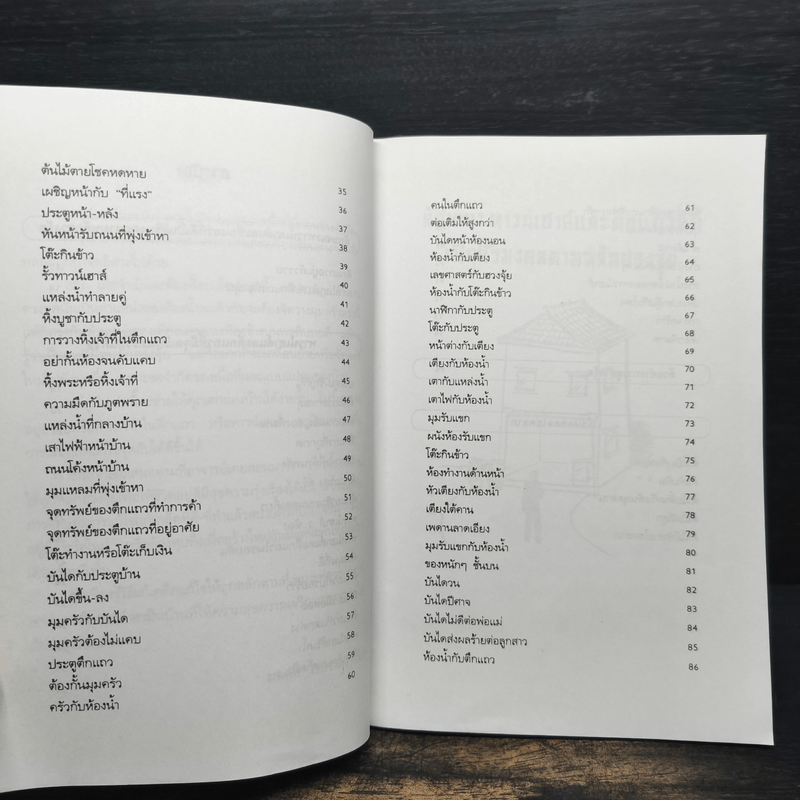 ต้นไม้ตายโชคหดหาย 35
เผชิญหน้ากับ "ที่แรง" 36
ประตูหน้า-หลัง 37
หันหน้ารับถนนที่พุ่งเข้าหา 38
โต๊ะกินข้าว 39
รั้วทาวน์เฮาส์ 40
แหล่งน้ำทำลายคู่ 41
หิ้งบูชากับประตู 42
การวางหิ้งเจ้าที่ในตึกแถว 43
อย่ากั้นห้องจนคับแคบ 44
หิ้งพระหรือหิ้งเจ้าที่ 45
ความมืดกับภูตพราย 46
แหล่งน้ำที่กลางบ้าน 47
เสาไฟฟ้าหน้าบ้าน 48
ถนนโค้งหน้าบ้าน 49
มุมแหลมที่พุ่งเข้าหา 50
จุดทรัพย์ของตึกแถวที่ทำการค้า 51
จุดทรัพย์ของตึกแถวที่อยู่อาศัย 52
โต๊ะทำงานหรือโต๊ะเก็บเงิน 53
บันไดกับประตูบ้าน 54
บันไดขึ้น-ลง 55
มุมครัวกับบันได 56
มุมครัวต้องไม่แคบ 57
ประตูตึกแถว 58
ต้องกั้นมุมครัว 59
ครัวกับห้องน้ำ 60
คนในตึกแถว 61
ต่อเติมให้สูงกว่า 62
บันไดหน้าห้องนอน 63
ห้องน้ำกับเตียง 64
เลขศาสตร์กับฮวงจุ้ย 65
ห้องน้ำกับโต๊ะกินข้าว 66
นาฬิกากับประตู 67
โต๊ะกับประตู 68
หน้าต่างกับเตียง 69
เตียงกับห้องน้ำ 70
เตากับแหล่งน้ำ 71
เตาไฟกับห้องน้ำ 72
มุมรับแขก 73
ผนังห้องรับแขก 74
โต๊ะกินข้าว 75
ห้องทำงานด้านหน้า 76
หัวเตียงกับห้องน้ำ 77
เตียงใต้คาน 78
เพดานลาดเอียง 79
มุมรับแขกกับห้องน้ำ 80
ของหนักๆ ชั้นบน 81
บันไดวน 82
บันไดปีศาจ 83
บันไดไม่ดีต่อพ่อแม่ 84
บันไดส่งผลร้ายต่อลูกสาว 85
ห้องน้ำกับตึกแถว 86